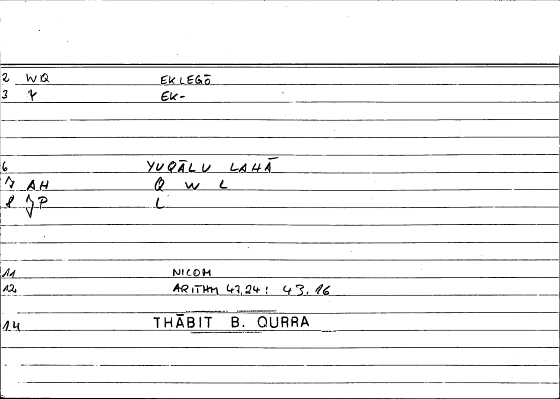 2 WQ EKLEGŌ
3 EK-
6 YUQĀLU LAHĀ
7 AH Q W L
8 JP L
11 NICOM
12 ARITHM 43,24: 43.16
14 THĀBIT B. QURRA